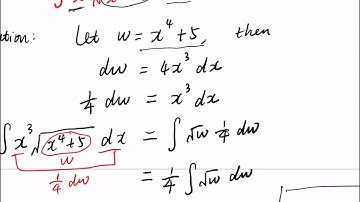 Let w = x⁴+5, then
dw = 4x³ dx
¼ dw = x³ dx
∫ x³ √(x⁴+5) dx = ∫ √w ¼ dw
w
¼ dw
= ¼ ∫ √w dw